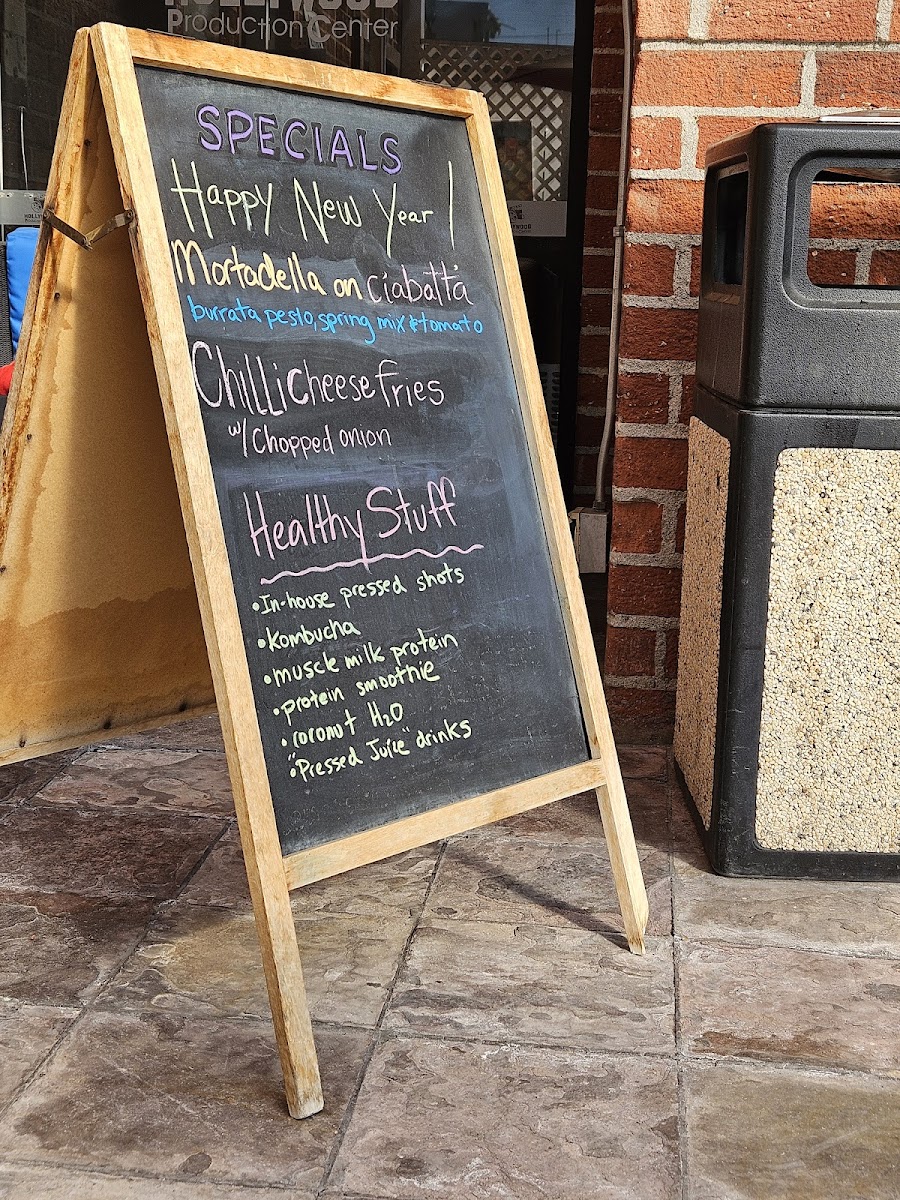 HOLLYWOOD
Production Center
SPECIALS
Happy New Year!
Mortadella on ciabatta
burrata pesto, spring mix & tomato
Chilli cheese fries
w/ chopped onion
Healthy Stuff
• In-house pressed shots
• Kombucha
• muscle milk protein
• protein smoothie
• coconut H₂O
• "Pressed Juice" drinks